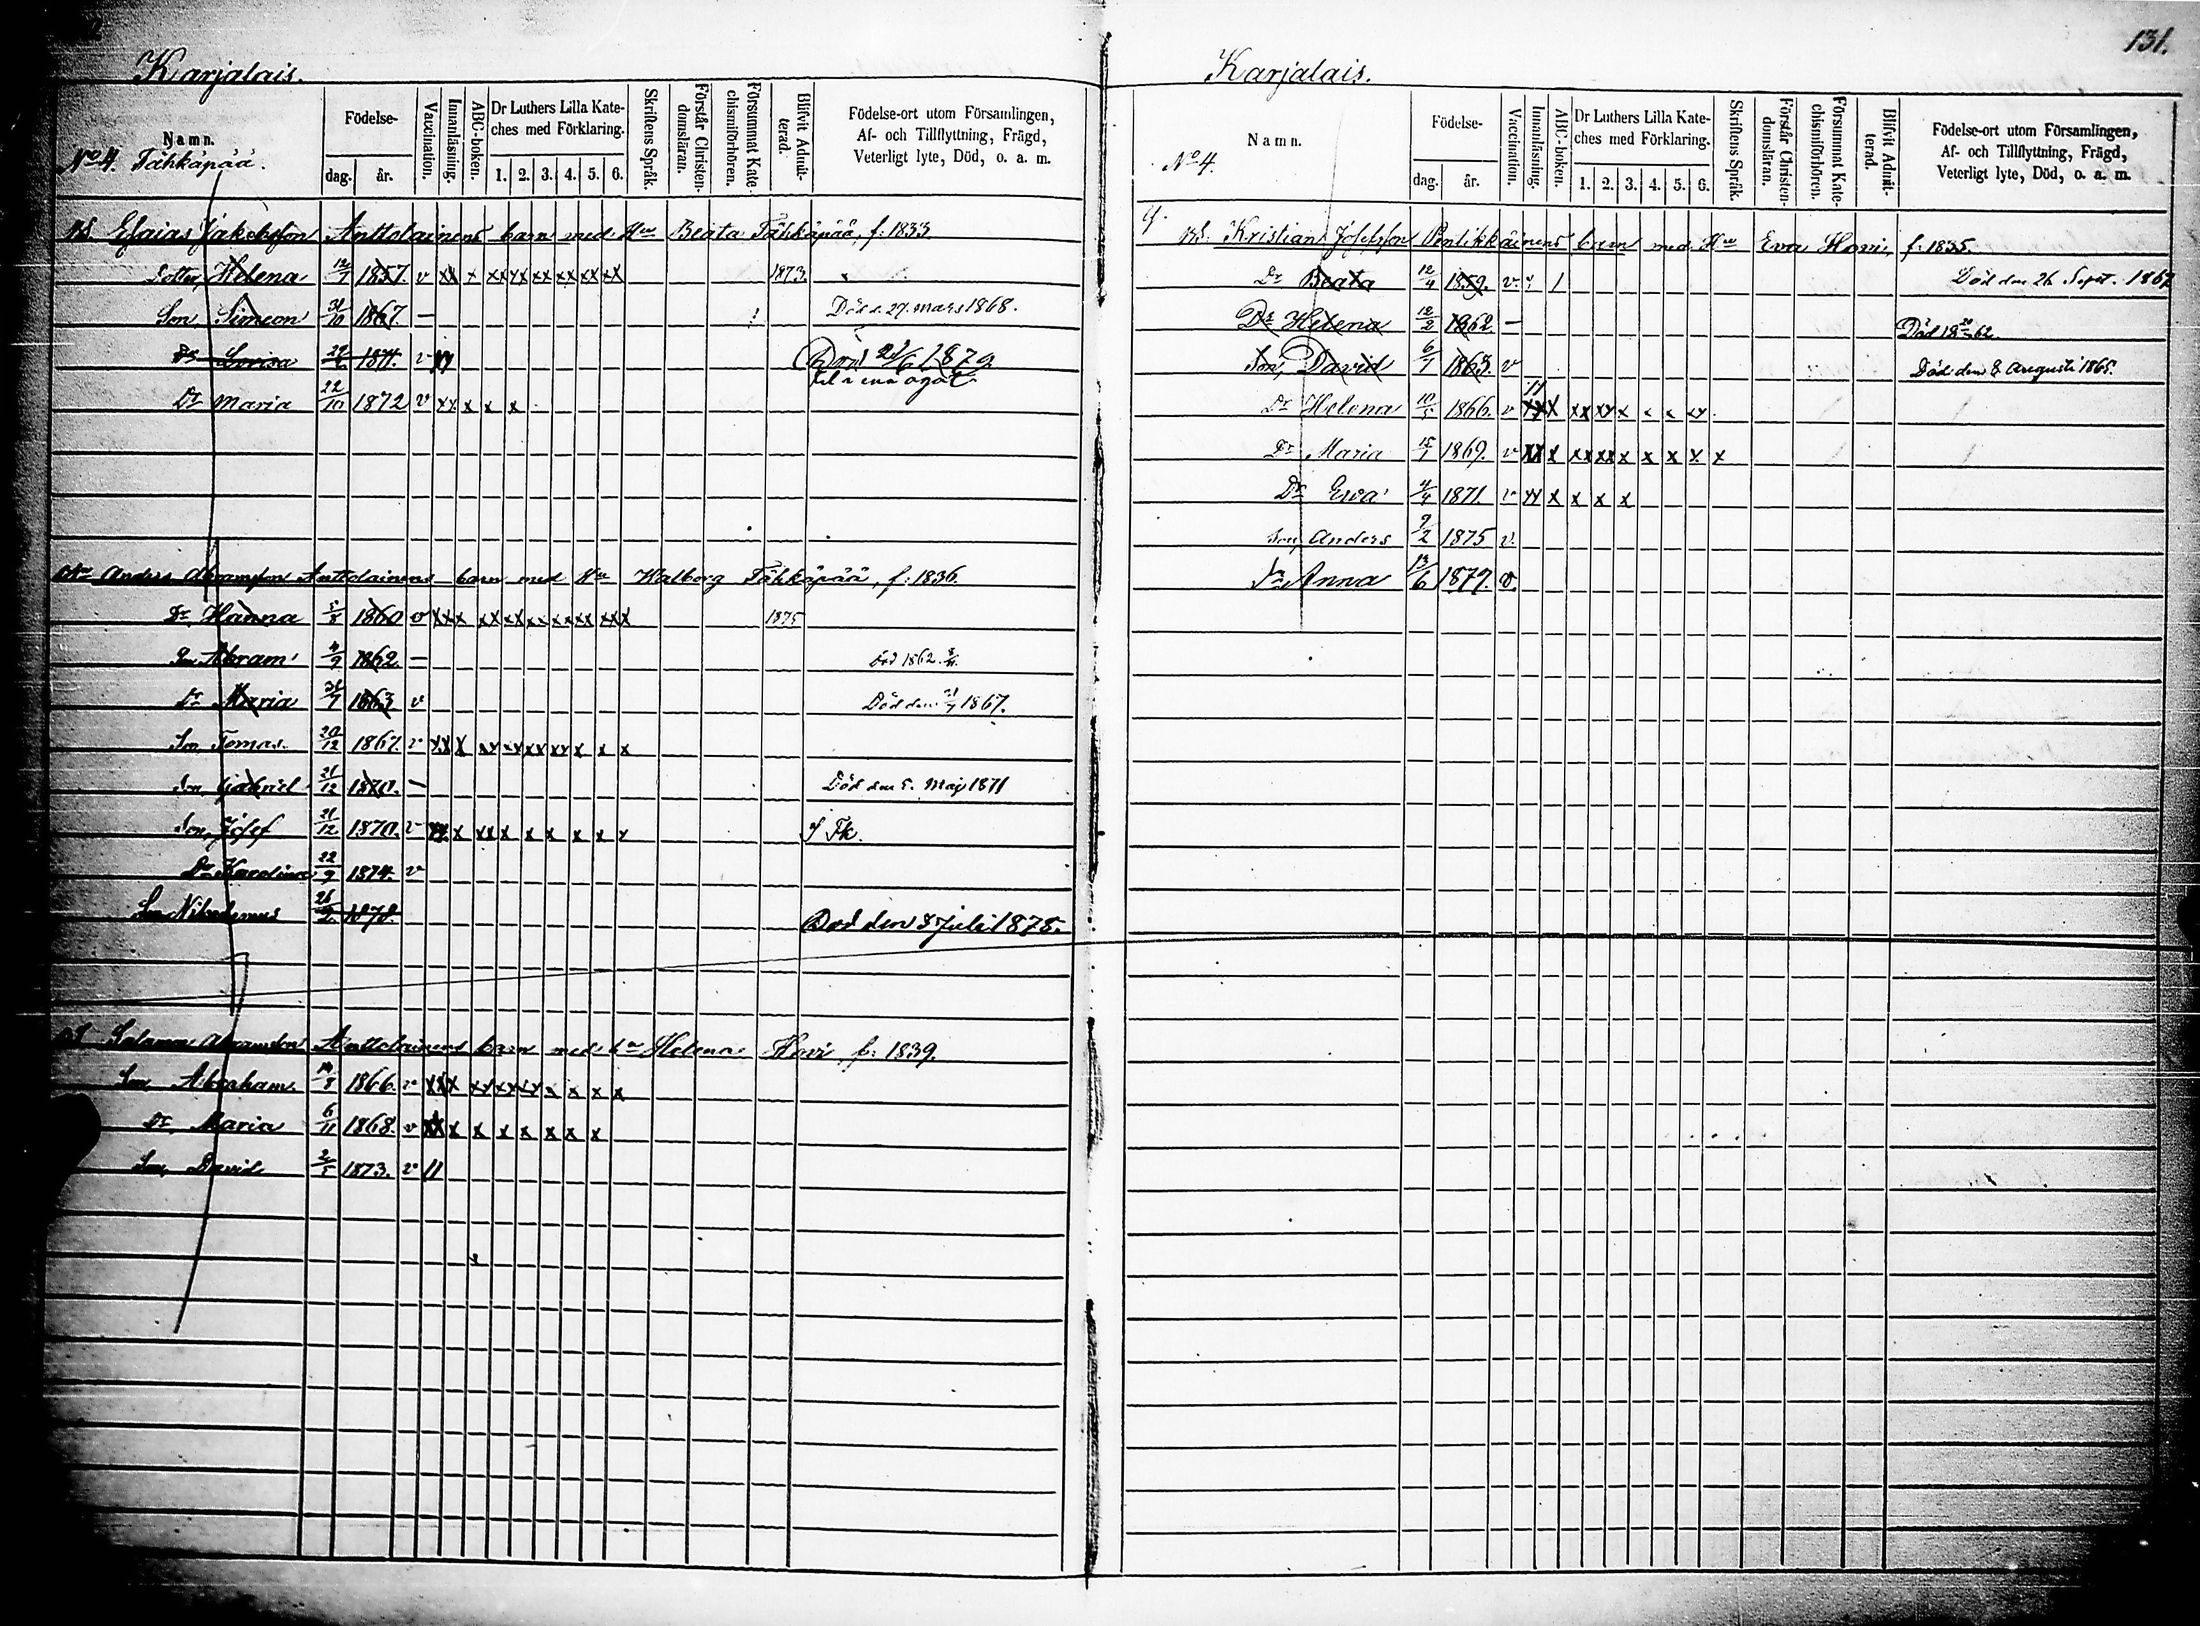 131.
Karjalais.
Namn.
Födelse-
dag. år.
Vaccination.
Innanläsning.
ABC-boken.
Dr Luthers Lilla Kate-
ches med Förklaring.
1. 2. 3. 4. 5. 6.
Skriftens Språk.
Förstår Christen-
domsläran.
Försummat Kate-
chismiförhören.
Blifvit Admit-
terad.
Födelse-ort utom Församlingen,
Af- och Tillflyttning, Frägd,
Veterligt lyte, Död, o. a. m.
No 4. Tähkäpää.
Esaias Jakobsson Anttolainens barn med Hu Beata Tähkäpää, f. 1833
Dotter, Helena 12/7 1857. v xx x xx xx xx xx xx xx 1873.
Son Simeon 31/10 1867. — Död d. 29. mars 1868.
Dr Lovisa 1871. v Död 21/6 1879
Dr Maria 22/10 1872 v xx x x x
Anders Abramsson Anttolainens barn med Hu Walborg Tähkäpää, f. 1836.
Dr Hanna 5/8 1860 v xx x xx xx xx xx xx xxx 1875
Son Abram 4/9 1862 — Död 1862.
Dr Maria 31/7 1863 v Död den 1867.
Son Tomas. 20/12 1867. v xx x xx xx xx xx x x x
Son, Gabriel 21/12 1870. — Död den 5. Maj 1871
Son, Josef 21/12 1870. v xx x xx x x x x x x
Dr Karolina 22/9 1874. v
Son Nikodemus 1878. Död den 8 Juli 1878.
Salomon Abramsson Anttolainens barn med hu Helena Howi, f. 1839.
Son, Abraham. 1866. v xx x xx xx xx x x x x
Dr, Maria 6/11 1868. v xx x x x x x x
Son, David 2/5 1873. v 11
Karjalais.
Namn.
Födelse-
dag. år.
Vaccination.
Innanläsning.
ABC-boken.
Dr Luthers Lilla Kate-
ches med Förklaring.
1. 2. 3. 4. 5. 6.
Skriftens Språk.
Förstår Christen-
domsläran.
Försummat Kate-
chismiförhören.
Blifvit Admit-
terad.
Födelse-ort utom Församlingen,
Af- och Tillflyttning, Frägd,
Veterligt lyte, Död, o. a. m.
No 4.
Kristian Josefsson Penttikäinens barn med Hu Eva Howi, f. 1835.
Dr Beata 12/4 1859. v. Död den 26 Sept. 1867
Dr Helena 12/2 1862 — Död 18 62
Son, David 6/7 1863. v Död den 8 Augusti 1865.
Dr Helena 10/5 1866. v xx x xx xx x x x xx
Dr Maria 15/7 1869. v xx x xx xx x x x x x
Dr Ewa 4/4 1871. v xx x x x x
Son, Anders 9/2 1875 v.
Dr Anna 13/6 1877. v.